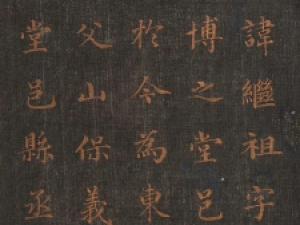 諱繼祖字
博之堂邑
於今為東
父山保義
堂邑縣丞